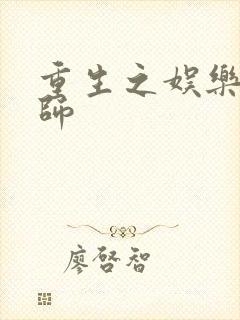 重生之娛樂
師
廖啓智